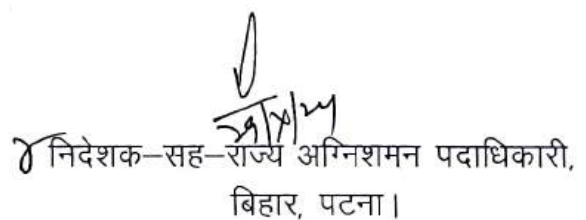 निदेशक–सह–राज्य अग्निशमन पदाधिकारी,
बिहार, पटना।